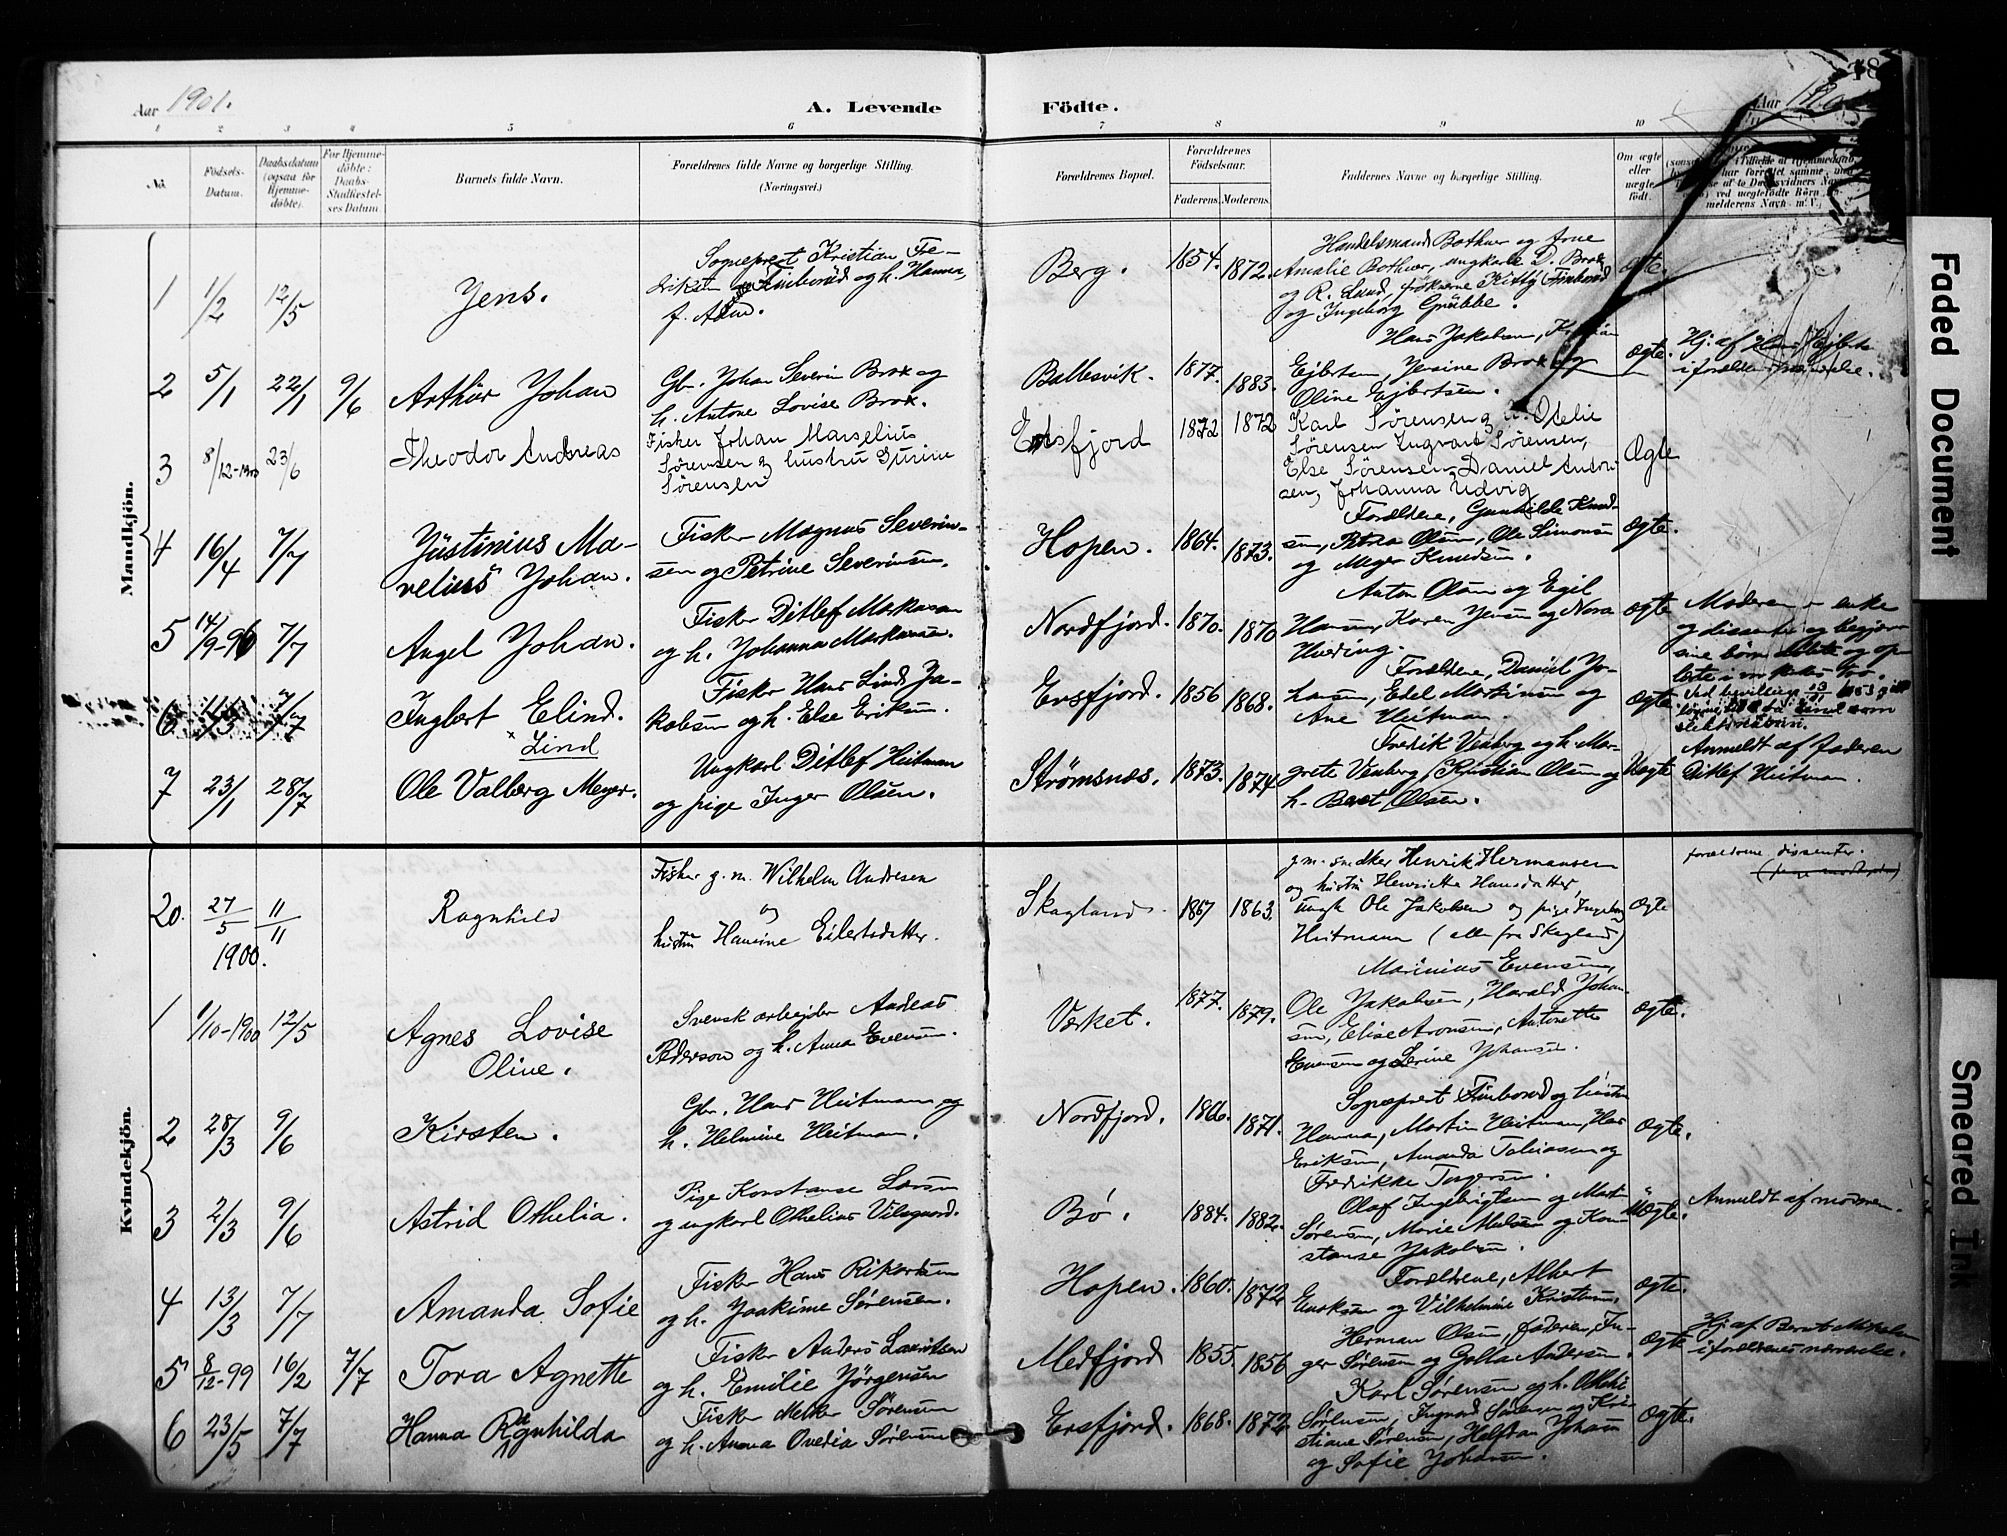 Aar 1901.
A. Levende Födte.
Aar
1 2 3 4 5 6 7 8 9 10
No. Födsels-Datum. Daabsdatum (ogsaa for Hjemme-döbte). For Hjemme-döbte: Daabs-Stadfæstel-ses Datum. Barnets fulde Navn. Forældrenes fulde Navne og borgerlige Stilling. (Næringsvei.) Forældrenes Bopæl. Forældrenes Födselsaar. Faderens. Moderens. Faddernes Navne og borgerlige Stilling. Om ægte eller uægte født.
Mandkjön.
1 1/2 12/5 Jens. Sogneprest Kristian Fre-
driksen Finborud og h. Hanna,
f. Berg. 1854. 1872. Handelsmand Bothner og Arne
Amalie Bothner, ungkarl D. Brox
og R. Lund, frøknerne Kitty Finborud
og Ingeborg Grübbe. ægte.
2 5/1 22/1 9/6 Arthur Johan Gbr. Johan Severin Brox og
h. Antone Lovise Brox. Ballesvik. 1877. 1883. Hans Jakobsen,
Eibertsen, Jensine Brox og
Oline Ejbertsen. ægte. Hj. af Hans
i forældrenes nærværelse.
3 8/12-1900 23/6 Theodor Andreas Fisker Johan Marselius
Sørensen & hustru Gurine
Sørensen Ersfjord 1872 1872 Karl Sørensen & h. Otelie
Sørensen Ingvart Sørensen,
Else Sørensen Daniel Andori-
sen, Johanna Udvig Ægte
4 16/4 7/7 Justinius Ma-
relius Johan. Fisker Magnus Severin-
sen og Petrine Severinsen. Hopen. 1864. 1873. Forældrene, Gunhilde Knud-
sen, Petra Olsen, Ole Simonsen
og Meyer Knudsen. ægte.
5 14/9-96 7/7 Angel Johan. Fisker Ditlef Markusen
og h. Johanna Markussen. Nordfjord. 1870. 1870 Anton Olsen og Egil
Hansen, Karen Jensen og Nora
Hvering. ægte Moderen er enke
og dissenter og begjærer
sine børn døbte og op-
lærte i vor kirkes tro.
6 7/7 Inglort Elind.
× Lind Fisker Hans Lind Ja-
kobsen og h. Else Eriksen. Ersfjord. 1856 1868. Forældrene, Daniel Jo-
hansen, Edel Martinsen og
Ane Heitman. ægte Ved bevilling
slektsnavn.
7 23/1 28/7 Ole Valberg Meyer. Ungkarl Ditlef Heitman
og pige Inger Olsen. Strømsnes. 1873. 1874 Fredrik Venberg og h. Mar-
grete Venberg, Kristian Olsen og
h. Beret Olsen. Uægte Anmeldt af faderen
Ditlef Heitman.
Kvindekjön.
20. 27/5 1900. 11/11 Ragnhild Fisker g. m. Wilhelm Andresen
og
hustru Hansine Eilertsdatter. Skagland. 1867 1863. g.m. snedker Henrik Hermansen
og hustru Henriette Hansdatter,
ungk Ole Jakobsen og pige Ingeborg
Heitmann (alle fra Skagland) Ægte forældrene dissenter.
1 1/10-1900 12/5 Agnes Lovise
Oline. Svensk arbejder Andreas
Pederson og h. Anna Evensen. Verket. 1877. 1879. Marinius Evensen,
Ole Jakobsen, Harald Johan-
sen, Elise Aronsen, Antonette
Evensen og Serine Johansen. ægte.
2 28/3 9/6 Kirsten. Gbr. Hans Heitmann og
h. Helmine Heitman. Nordfjord. 1866. 1871. Sogneprest Finborud og hustru
Hanna, Martin Heitman, Hans
Eriksen, Amanda Tobiassen og
Fredrikke Torgersen. ægte.
3 2/3 9/6 Astrid Othelia. Pige Konstanse Larsen
og ungkarl Othelius Vilsgaard. Bø. 1884. 1882. Olaf Ingebrigtsen og Martin
Sørensen, Marie Madsen og Kon-
stanse Jakobsen. Uægte. Anmeldt af moderen.
4 13/3 7/7 Amanda Sofie Fisker Hans Rikartsen
og h. Joakime Sørensen. Hopen. 1860. 1872 Forældrene, Albert
Enoksen og Vilhelmine Kristensen. ægte.
5 8/12-99 16/2 7/7 Tora Agnette Fisker Anders Lauritsen
og h. Emilie Jørgensen Medfjord 1855. 1856 Herman Olsen, faderen, In-
ger Sørensen og Golla Andersen. ægte Hj. af Bernt Mikalsen
i forældrenes nærværelse.
6 23/5 7/7 Hanna Ragnhilda Fisker Meker Sørensen
og h. Anna Ovedia Sørensen Ersfjord. 1868. 1872 Karl Sørensen og h. Othelie
Sørensen, Ingvard Sørensen og Kri-
stiane Sørensen, Halfdan Johansen
og Sofie Johansen. ægte.
Faded Document
Smeared Ink